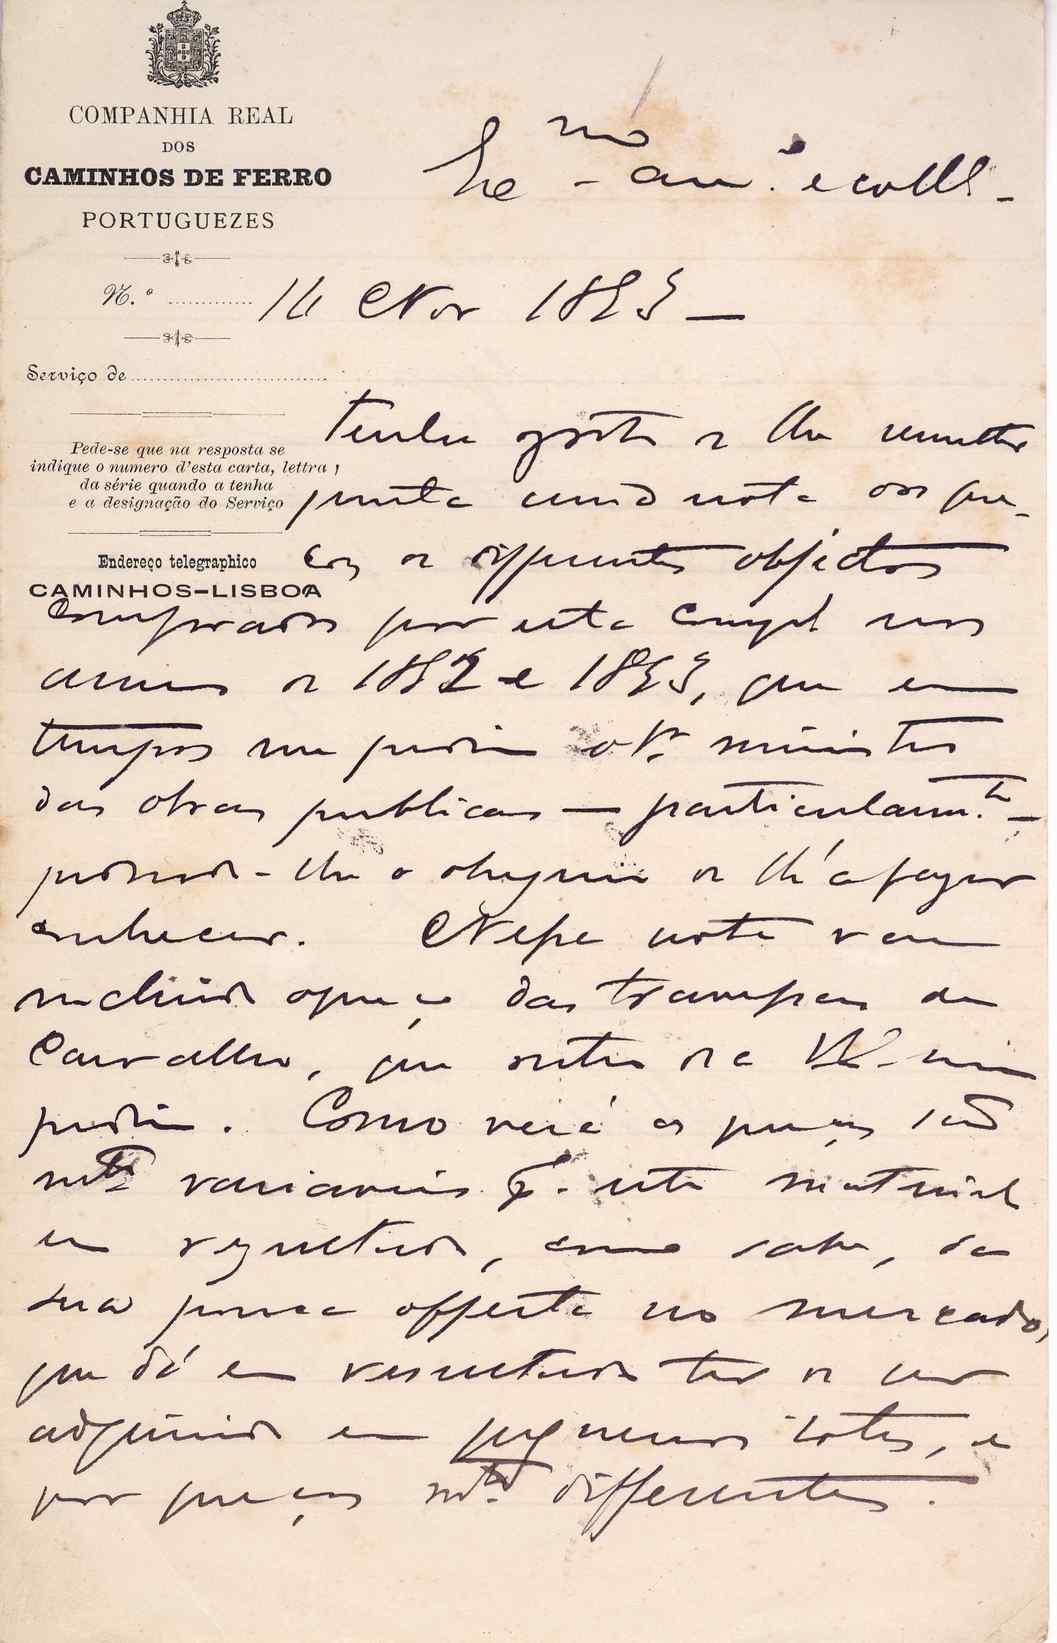 COMPANHIA REAL
DOS
CAMINHOS DE FERRO
PORTUGUEZES
Exmo am.º e coll.
N.º
14 Nov 1893 —
Serviço de
Pede-se que na resposta se
indique o numero d'esta carta, lettra,
da série quando a tenha
e a designação do Serviço
Endereço telegraphico
CAMINHOS-LISBOA
Tenho gosto de lhe remetter
junto uma nota dos pre-
ços de differentes objectos
comprados por esta Compª nos
annos de 1892 e 1893, que em
tempos me pediu o Sr. ministro
das obras publicas — particularmte. —
pedindo-lhe o obsequio de lh'a fazer
conhecer. Nessa nota vem
incluido o preço das travessas de
Carvalho, que outro dia V. Ex. me
pediu. Como verá os preços são
mto variaveis pq. este material
em resultado, como sabe, da
sua pouca offerta no mercado,
que dá em resultado ter de ser
adquirido em pequenos lotes, e
por preços mto differentes.